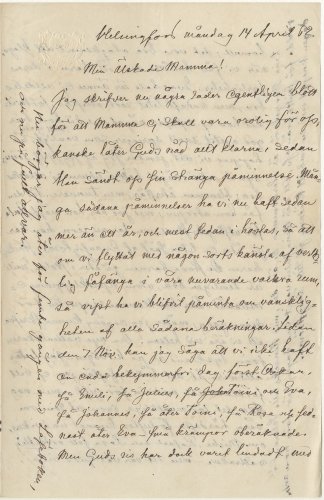 Helsingfors måndag 14 April 62
Min Älskade Mamma!
Jag skrifver nu några rader egentligen blott
för att Mamma ej skall vara orolig för oss,
kanske låter Guds nåd allt klarna, sedan
Han sändt oss sin stränga påminnelse. Mån-
ga sådana påminnelser ha vi nu haft sedan
mer än ett år, och mest sedan i höstas, så att
om vi flyttat med någon sorts känsla af verk-
lig fåfänga i våra nuvarande vackra rum,
så visst ha vi blifvit påminta om vansklig-
heten af alla sådana beräkningar. Sedan
den 7 Nov. kan jag säga att vi icke haft
en enda bekymmerfri dag först Oskar,
så Emil, så Julius, så Eva,
så Johannes, så åter Toini, så Rosa och sed-
nast åter Eva
Men Guds ris har dock varit lindadt med
Nu börjar jag åter för femte gången med
om nu på just allvar.